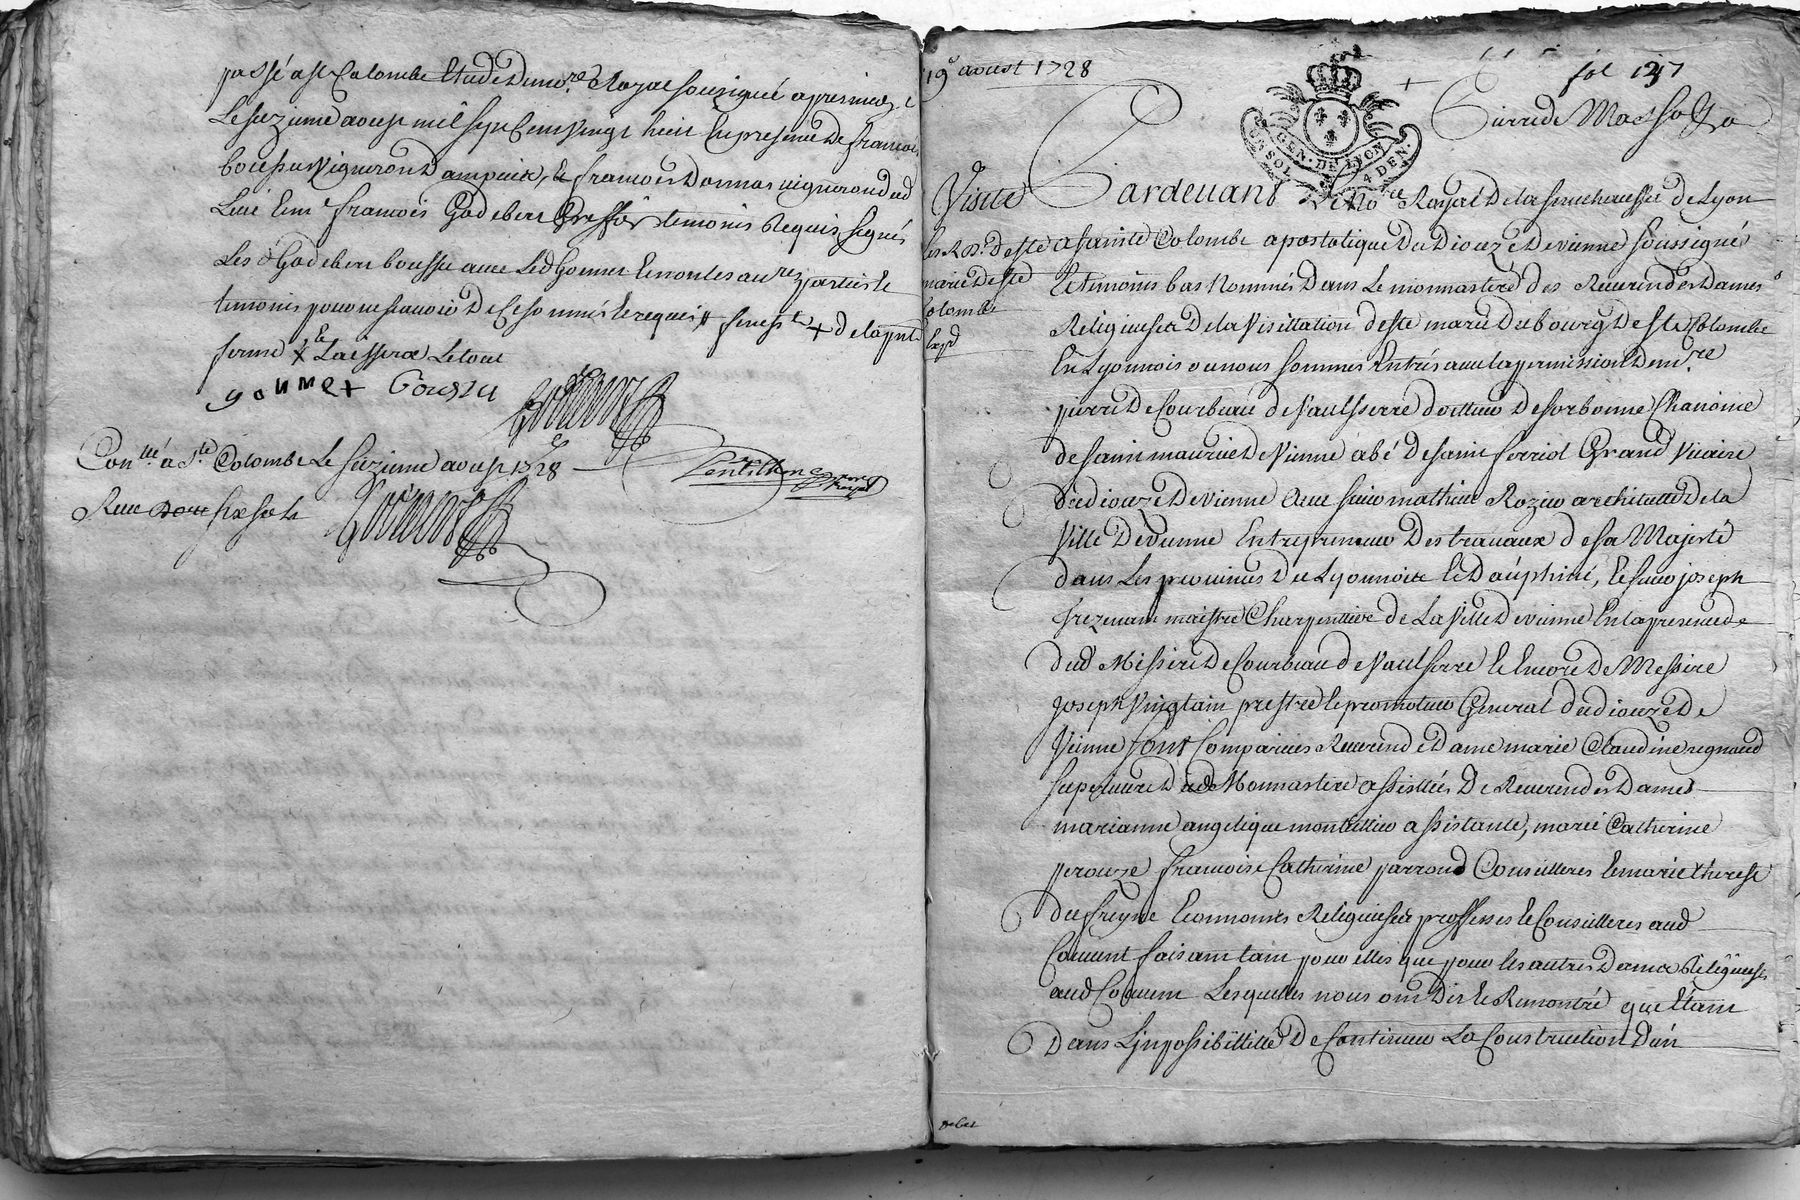 passé a Ste Colombe Etude dud no.re Royal soussigné apres midy
Le seizieme aoust mil sept Cens vingt huit En presence de francois
boussu vigneron Dampuix, & francois Donnas vigneron dud
Lieu temoins Requis signés
Les d
temoins pour ne scavoir De Ce sommés Et requis
ferme Laissera Letout
gonnet Boussu
Con.llé a S.te Colombe Le seizieme aoust 1728
Receu six sols
19e aoust 1728
fol 137
GEN. DE LYON
SOL 4 DEN.
Visite
les R D.e de Ste
marie De Ste
Colombe
Pardevant Le No.re Royal De la senechaussée de Lyon
a sainte Colombe apostolique du Dioceze De vienne soussigné
Et temoins bas Nommés Dans Le monnastere des Reverendes Dames
Religieuses De la Visittation de Ste marie Du bourg De Ste Colombe
En Lyonnois ou nous sommes Entrés avec la permission De m.re
pierre De Corbeau de Vaulserre docteur De sorbonne Chanoine
de saint maurice De Vienne abé De saint ferriol Grand Vicaire
du dioceze De vienne Avec sieur mathieu Rozier architecte De la
Ville De vienne Entrepreneur Des travaux de sa Majesté
dans Les provinces Du Lyonnois Et Dauphiné, Et sieur joseph
frezenant maistre Charpentier de La Ville De vienne En la presence de
dud Messire De Courbeau de Vaulserre Et Encore De Messire
Joseph Vingtain prestre Et promoteur General du dioceze De
Vienne sont Comparües Reverende Dame marie Claudine regnaud
superieure Dud Monnastere assistées De Reverendes Dames
marianne angelique montellier assistante, marie Catherine
perouze francoise Catherine parroud Conseilleres Et marie therese
du freyne Economes Religieuses professes Et Conseilleres aud
Couvent faisant tant pour elles que pour les autres Dames Religieuses
aud Couvent Lesquelles nous ont Dit Et Remontré quetant
Dans Limpossibillitté De Continuer La Construction Dun